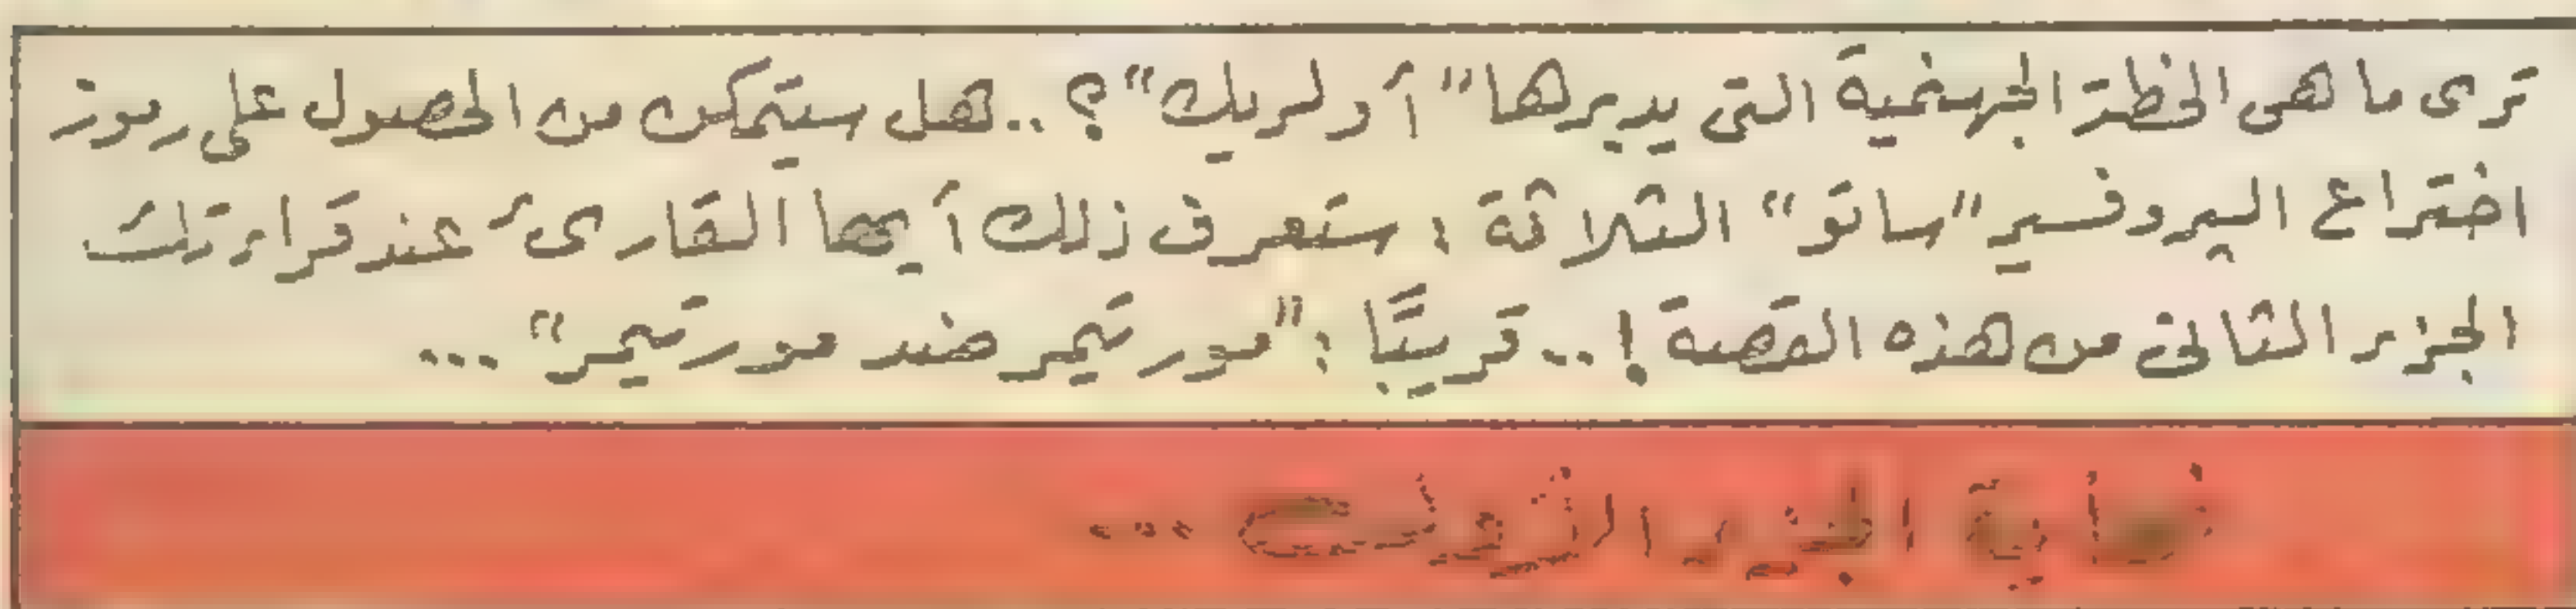 ترى ما هى الخطة الجهنمية التى يديرها "أولريك"؟ ..هل سيتمكن من الحصول على رموز
اختراع البروفسير "ساتو" الثلاثة ؛ ستعرف ذلك أيها القارئ عند قراءتك
الجزء الثانى من هذه القصة !.. قريبًا : "مورتيمر ضد مورتيمر" ...
نهاية الجزء الأول ...